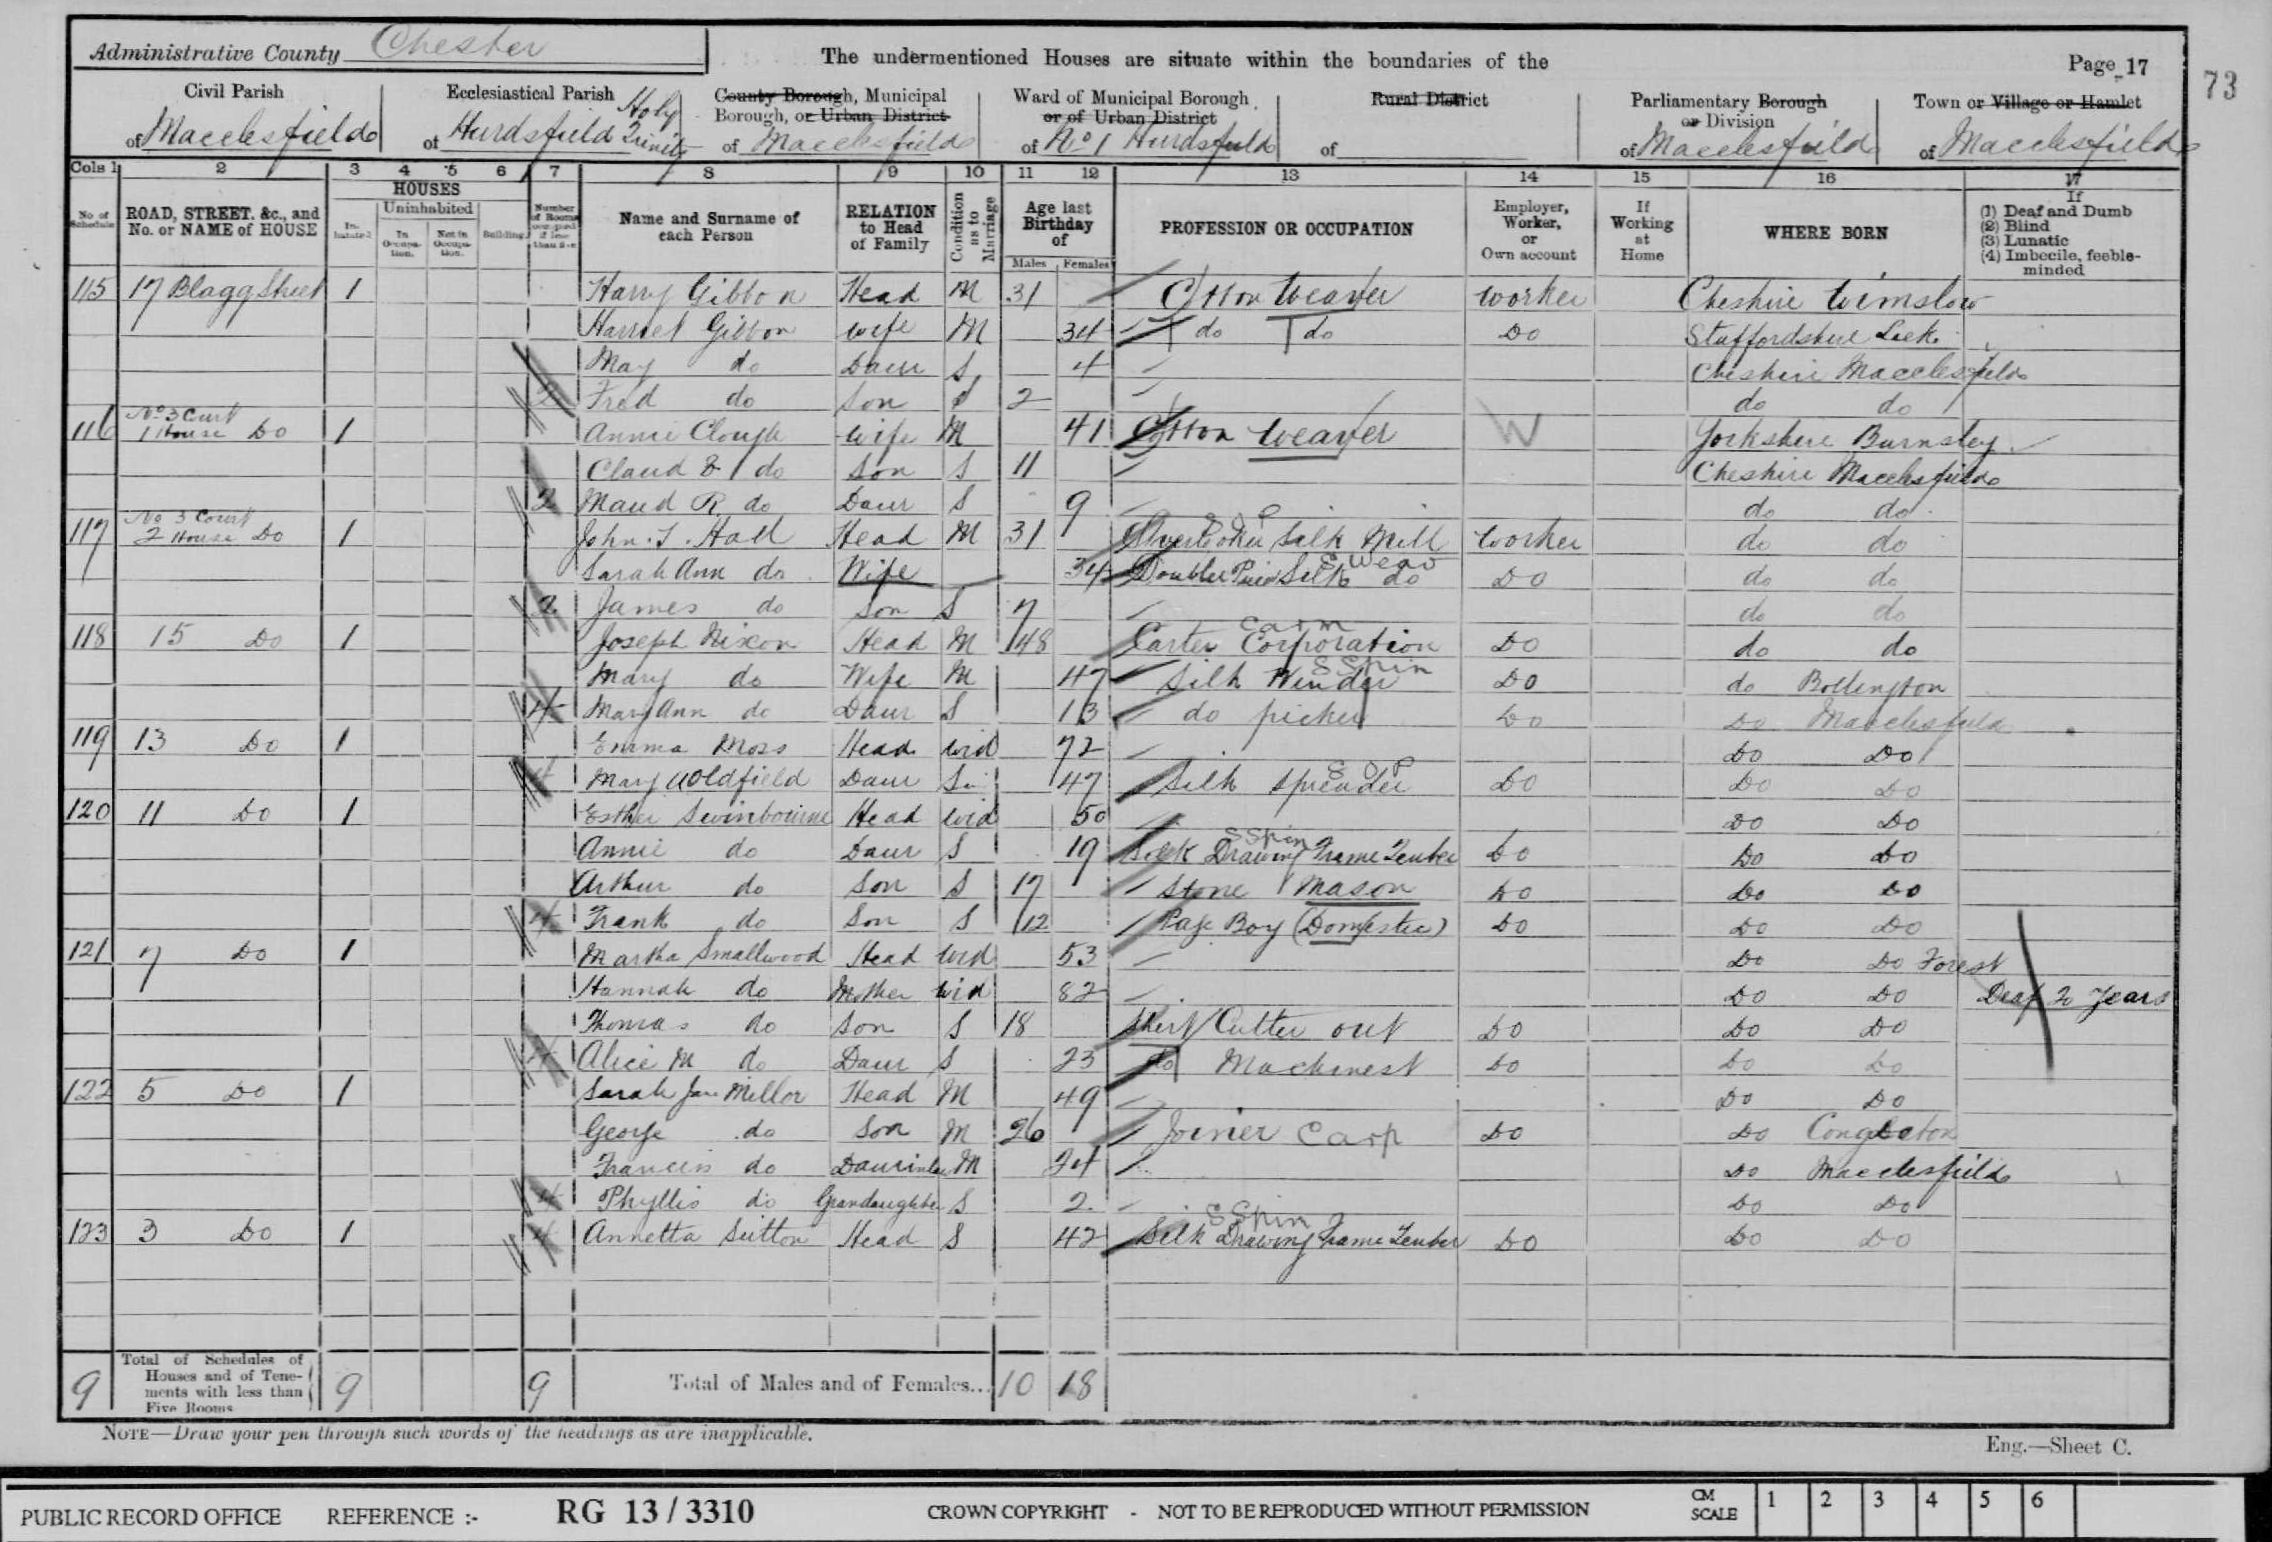 Administrative County Chester
The undermentioned Houses are situate within the boundaries of the
Page 17
73
Civil Parish of Macclesfield
Ecclesiastical Parish of Hurdsfield Holy Trinity
County Borough, Municipal Borough, or Urban District of Macclesfield
Ward of Municipal Borough or of Urban District of No 1 Hurdsfield
Rural District of
Parliamentary Borough or Division of Macclesfield
Town or Village or Hamlet of Macclesfield
Cols 1 2 3 4 5 6 7 8 9 10 11 12 13 14 15 16 17
No of Schedule
ROAD, STREET, &c., and No. or NAME of HOUSE
HOUSES
Inhabited
Uninhabited
In Occupation.
Not in Occupation.
Building
Number of Rooms occupied if less than five
Name and Surname of each Person
RELATION to Head of Family
Condition as to Marriage
Age last Birthday of
Males Females
PROFESSION OR OCCUPATION
Employer, Worker, or Own account
If Working at Home
WHERE BORN
If
(1) Deaf and Dumb
(2) Blind
(3) Lunatic
(4) Imbecile, feeble-minded
115 17 Blagg Street 1 Harry Gibbon Head M 31 Cotton Weaver Worker Cheshire Wimslow
Harriet Gibbon Wife M 34 do do Do Staffordshire Leek
May do Daur S 4 Cheshire Macclesfield
2 Fred do Son S 2 do do
116 No 3 Curt 1 House Do 1 Annie Clough Wife M 41 Cotton Weaver W Yorkshire Barnsley
Claud do Son S 11 Cheshire Macclesfield
2 Maud R do Daur S 9 do do
117 No 3 Court 2 House Do 1 John. T. Hall Head M 31 Overlooker Silk Mill S O P Worker do do
Sarah Ann do Wife 34 Doubler Silk do S Weav Do do do
2 James do Son S 7 do do
118 15 Do 1 Joseph Nixon Head M 48 Carter Corporation Carm Do do do
Mary do Wife M 47 Silk Winder S Spin Do do Bollington
4 Mary Ann do Daur S 13 do picker Do Do Macclesfield
119 13 Do 1 Emma Moss Head Wid 72 Do Do
4 Mary Oldfield Daur 47 Silk Spreader S O P Do Do Do
120 11 Do 1 Esther Swinbourne Head Wid 50 Do Do
Annie do Daur S 19 Silk Drawing Frame Tenter S Spin Do Do Do
Arthur do Son S 17 Stone Mason Do Do Do
4 Frank do Son S 12 Page Boy (Domestic) Do Do Do
121 7 Do 1 Martha Smallwood Head Wid 53 Do Do Forest
Hannah do Mother Wid 82 Do Do Deaf 20 Years
Thomas do Son S 18 Shirt Cutter out Do Do Do
4 Alice M do Daur S 23 do Machinest Do Do Do
122 5 Do 1 Sarah Jane Mellor Head M 49 Do Do
George do Son M 26 Joiner Carp Do Do Congleton
Francis do Daurinlaw M 24 Do Macclesfield
4 Phyllis do Grandaughter S 2 Do Do
123 3 Do 1 4 Annetta Sutton Head S 42 Silk Drawing Frame Tenter S Spin Do Do Do
9 Total of Schedules of Houses and of Tenements with less than Five Rooms 9 9 Total of Males and of Females... 10 18
NOTE—Draw your pen through such words of the headings as are inapplicable.
Eng.—Sheet C.
PUBLIC RECORD OFFICE REFERENCE :- RG 13 / 3310 CROWN COPYRIGHT - NOT TO BE REPRODUCED WITHOUT PERMISSION CM SCALE 1 2 3 4 5 6